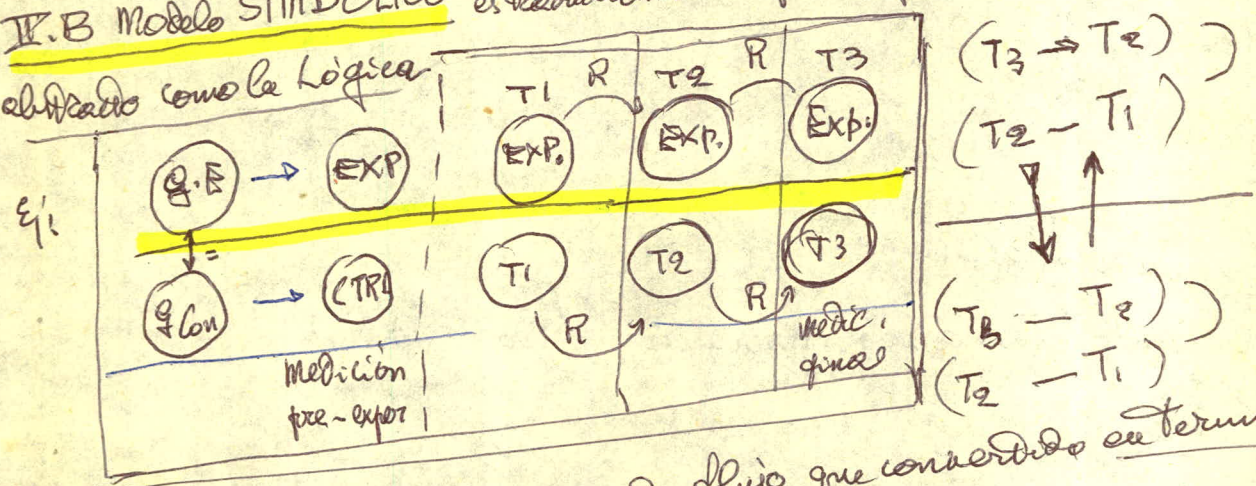 IV.B Modelo SIMBÓLICO
abstracto como la Lógica
Ej:
g.E → EXP
=
g Con → CTRL
medición
pre-exper
T1 R T2 R T3
EXP. EXP. EXP.
T1 T2 T3
R R
medic.
final
(T3 → T2)
(T2 — T1)
(T3 — T2)
(T2 — T1)
que convertido en